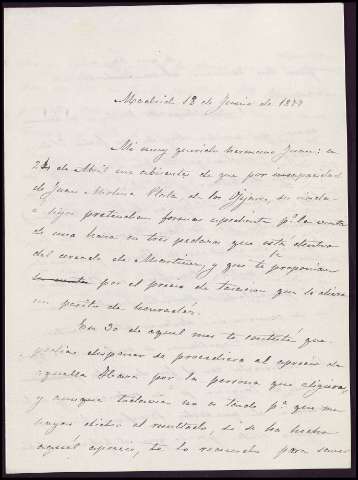 Madrid 18 de Junio de 18
Mi muy querido hermano Juan: en
24 de Abril me de que por incapacidad
de Juan Molina de los su viuda
é hijos pretendian formar espediente pª la venta
de una haza en tres pedazos que está dentro
del de Martinez, y que te la proponian
por el precio de tasacion que le diera
un perito de
En 30 de aquel mes te contesté que
podias disponer se procediera al aprecio de
aquella Haza por la persona que eligieras,
y aunque todavia no es tarde pª que me
hayas dicho el resultado, si se ha hecho
aquél aprecio, te lo recuerdo para saber